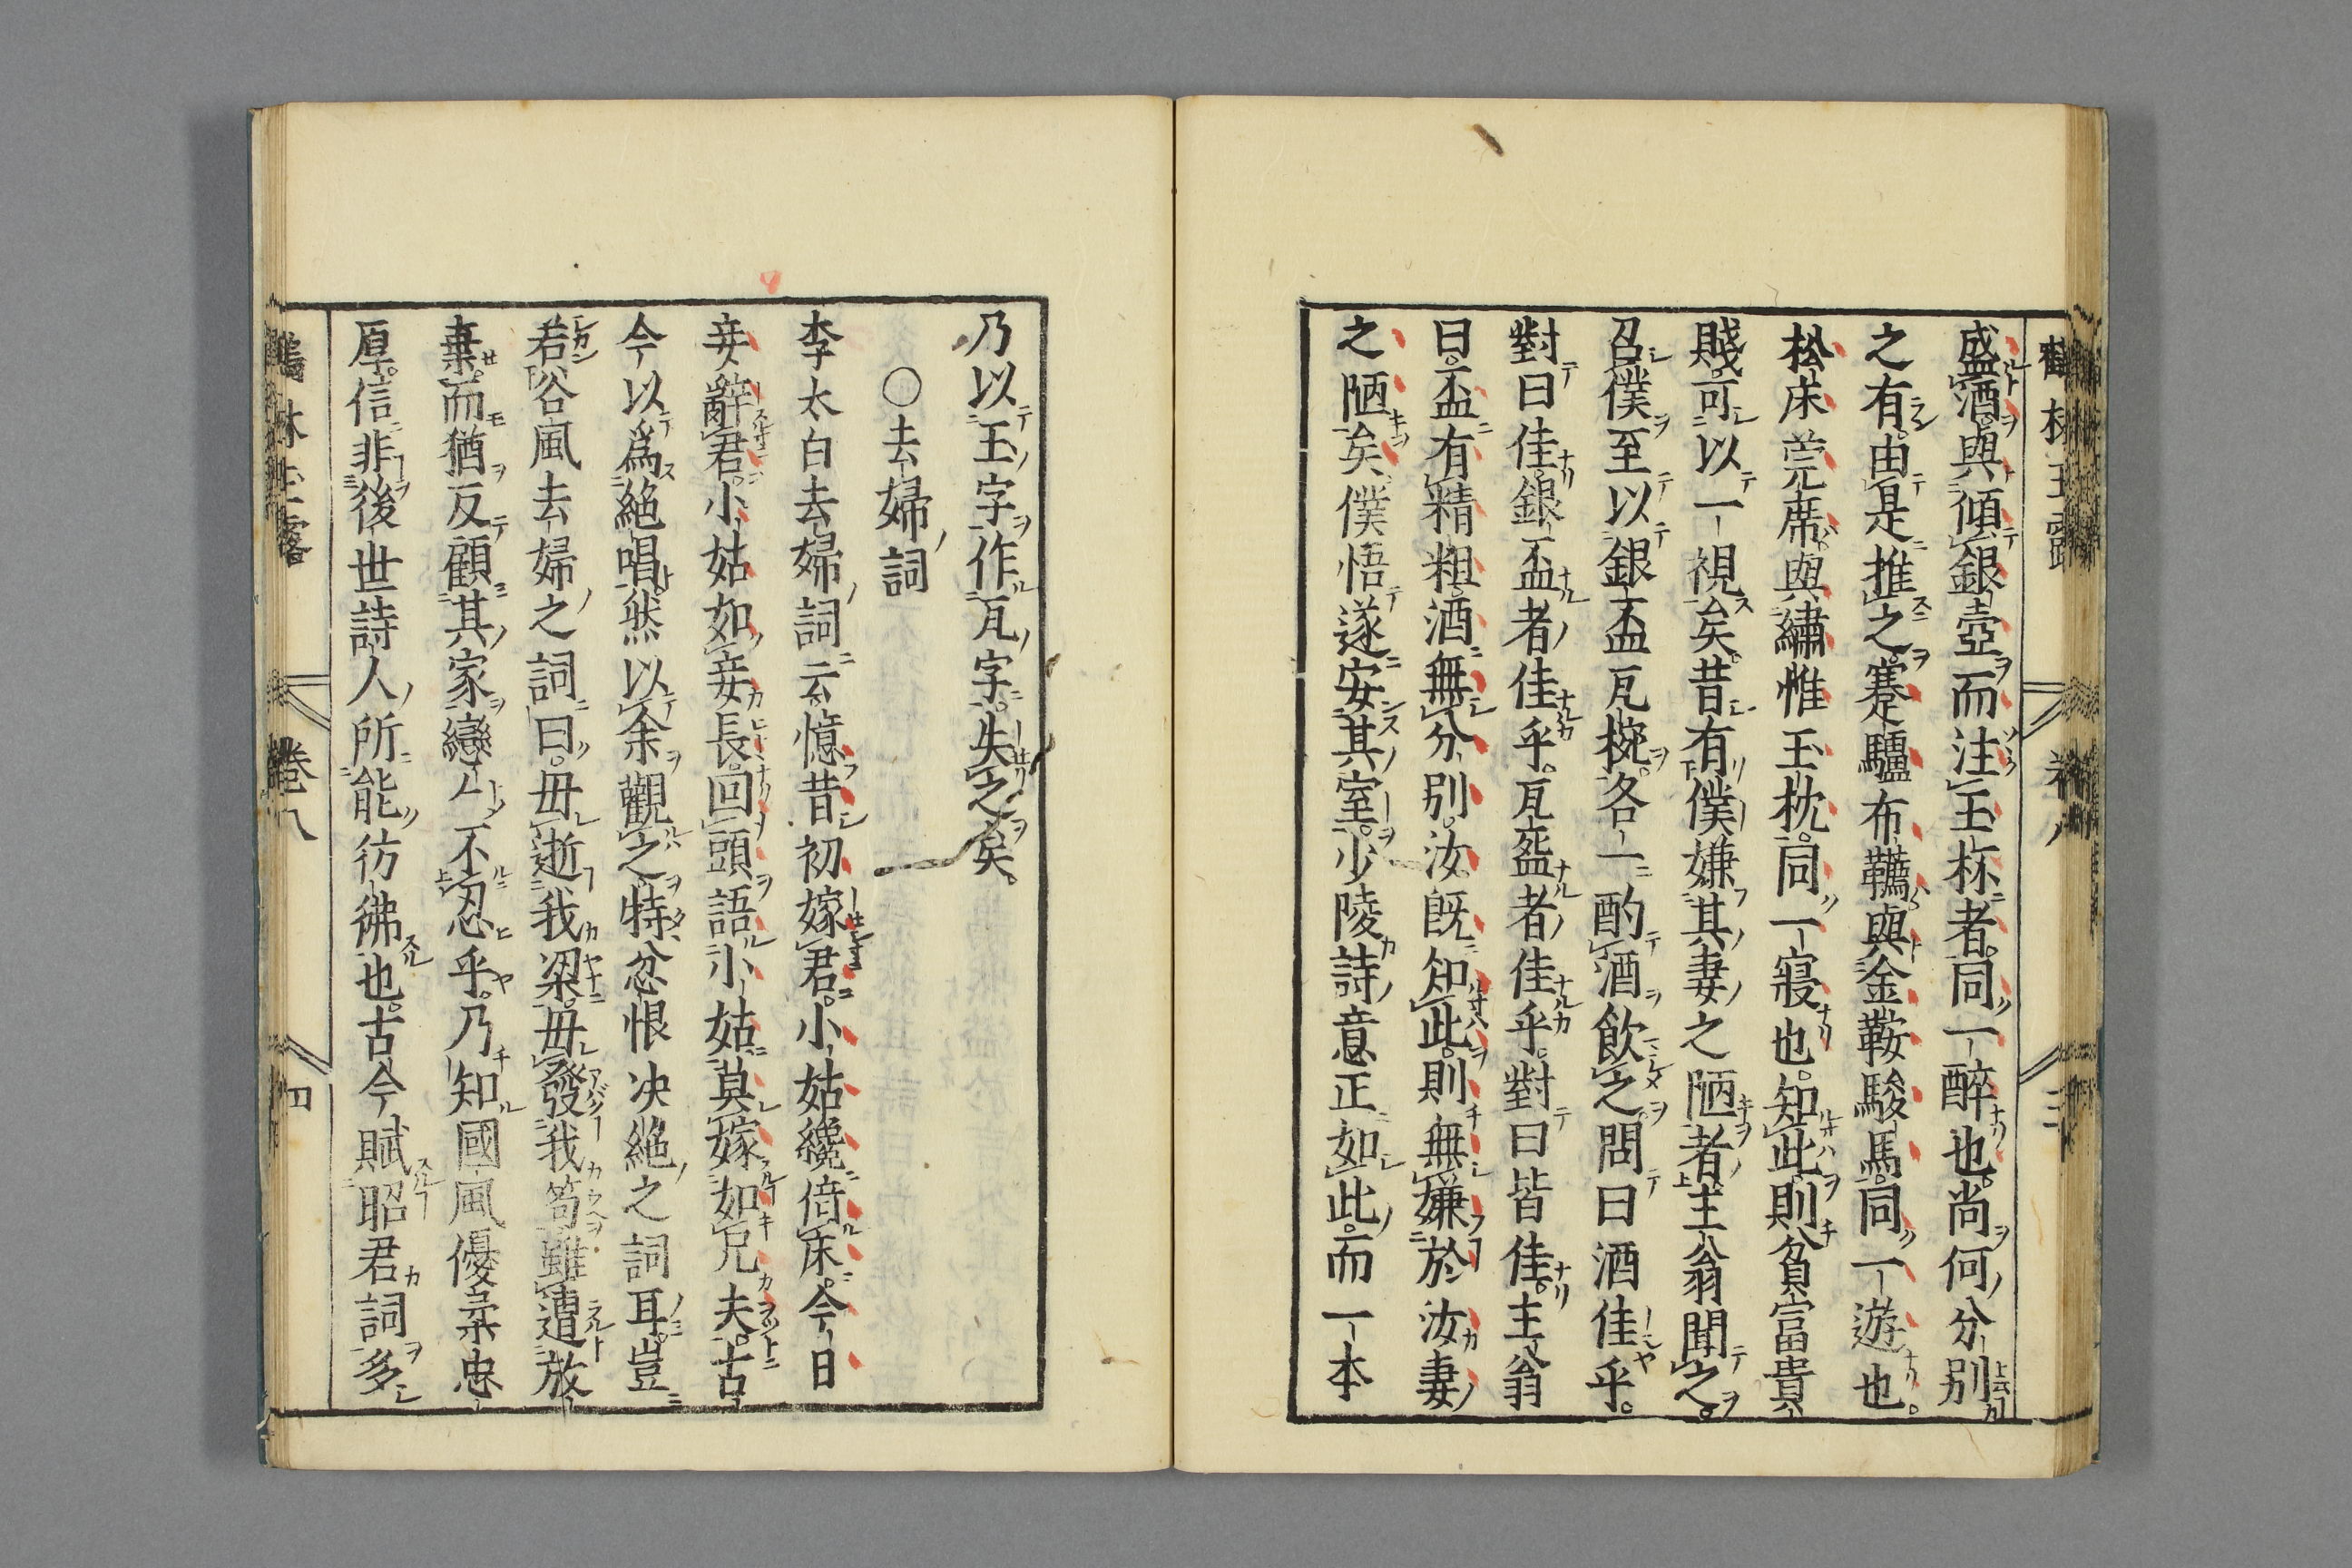 盛酒與傾銀壺而注玉杯者同一醉也尚何分別
之有由是推之蹇驢布韉與金鞍駿馬同一遊也
松床莞席與繡帷玉枕同一寢也知此則貧富貴
賤可以一視矣昔有僕嫌其妻之陋者主翁聞之
召僕至以銀盃瓦椀各一酌酒飲之問曰酒佳乎
對曰佳銀盃者佳乎瓦盌者佳乎對曰皆佳主翁
曰盃有精粗酒無分別汝既知此則無嫌於汝妻
之陋矣僕悟遂安其室少陵詩意正如此而一本
乃以玉字作瓦字失之矣
〇去婦詞
李太白去婦詞云憶昔初嫁君小姑纔倚床今日
妾辭君小姑如妾長回頭語小姑莫嫁如兄夫古
今以爲絕唱然以余觀之特忿恨决絕之詞耳豈
若谷風去婦之詞曰毋逝我梁毋發我笱雖遭放
棄而猶反顧其家戀々不忍乎乃知國風優柔忠
厚信非後世詩人所能彷彿也古今賦昭君詞多
鶴林玉露 卷八 四